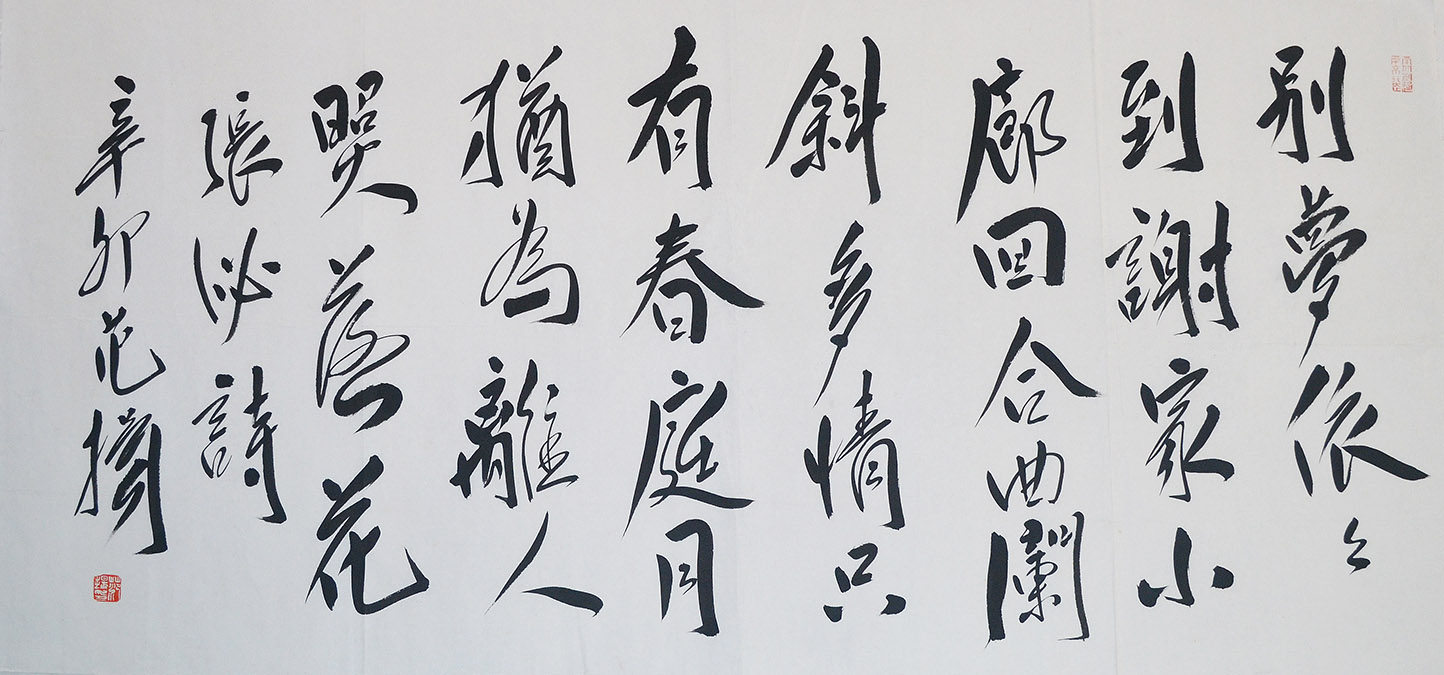 別夢依々
到謝家小
廊回合曲闌
斜多情只
有春庭月
猶為離人
照落花
張泌詩
辛卯范